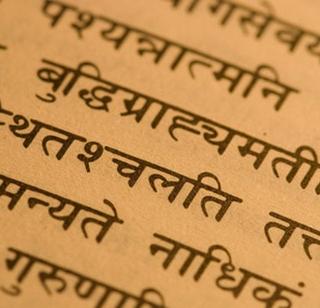 गसेवय
पश्यन्नात्मनि
बुद्धिग्राह्यमती
थितश्चलति तत्त
मन्यते नाधिकं
गुरुणापि